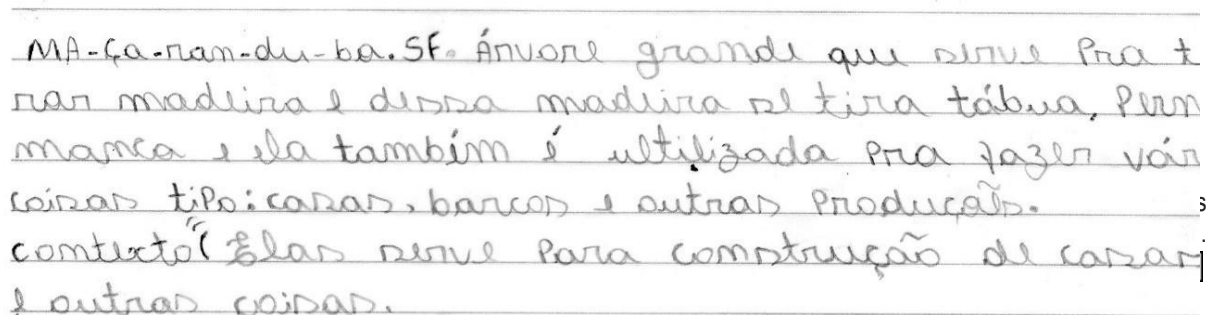 MA-ça-ran-du-ba. SF. Árvore grande que serve Pra t
rar madeira e dessa madeira se tira tábua, Pern
manca e ela também é ultilizada pra fazer vár
coisas tipo: casas, barcos e outras Produção.
contexto ( Elas serve Para construção de casas
e outras coisas.